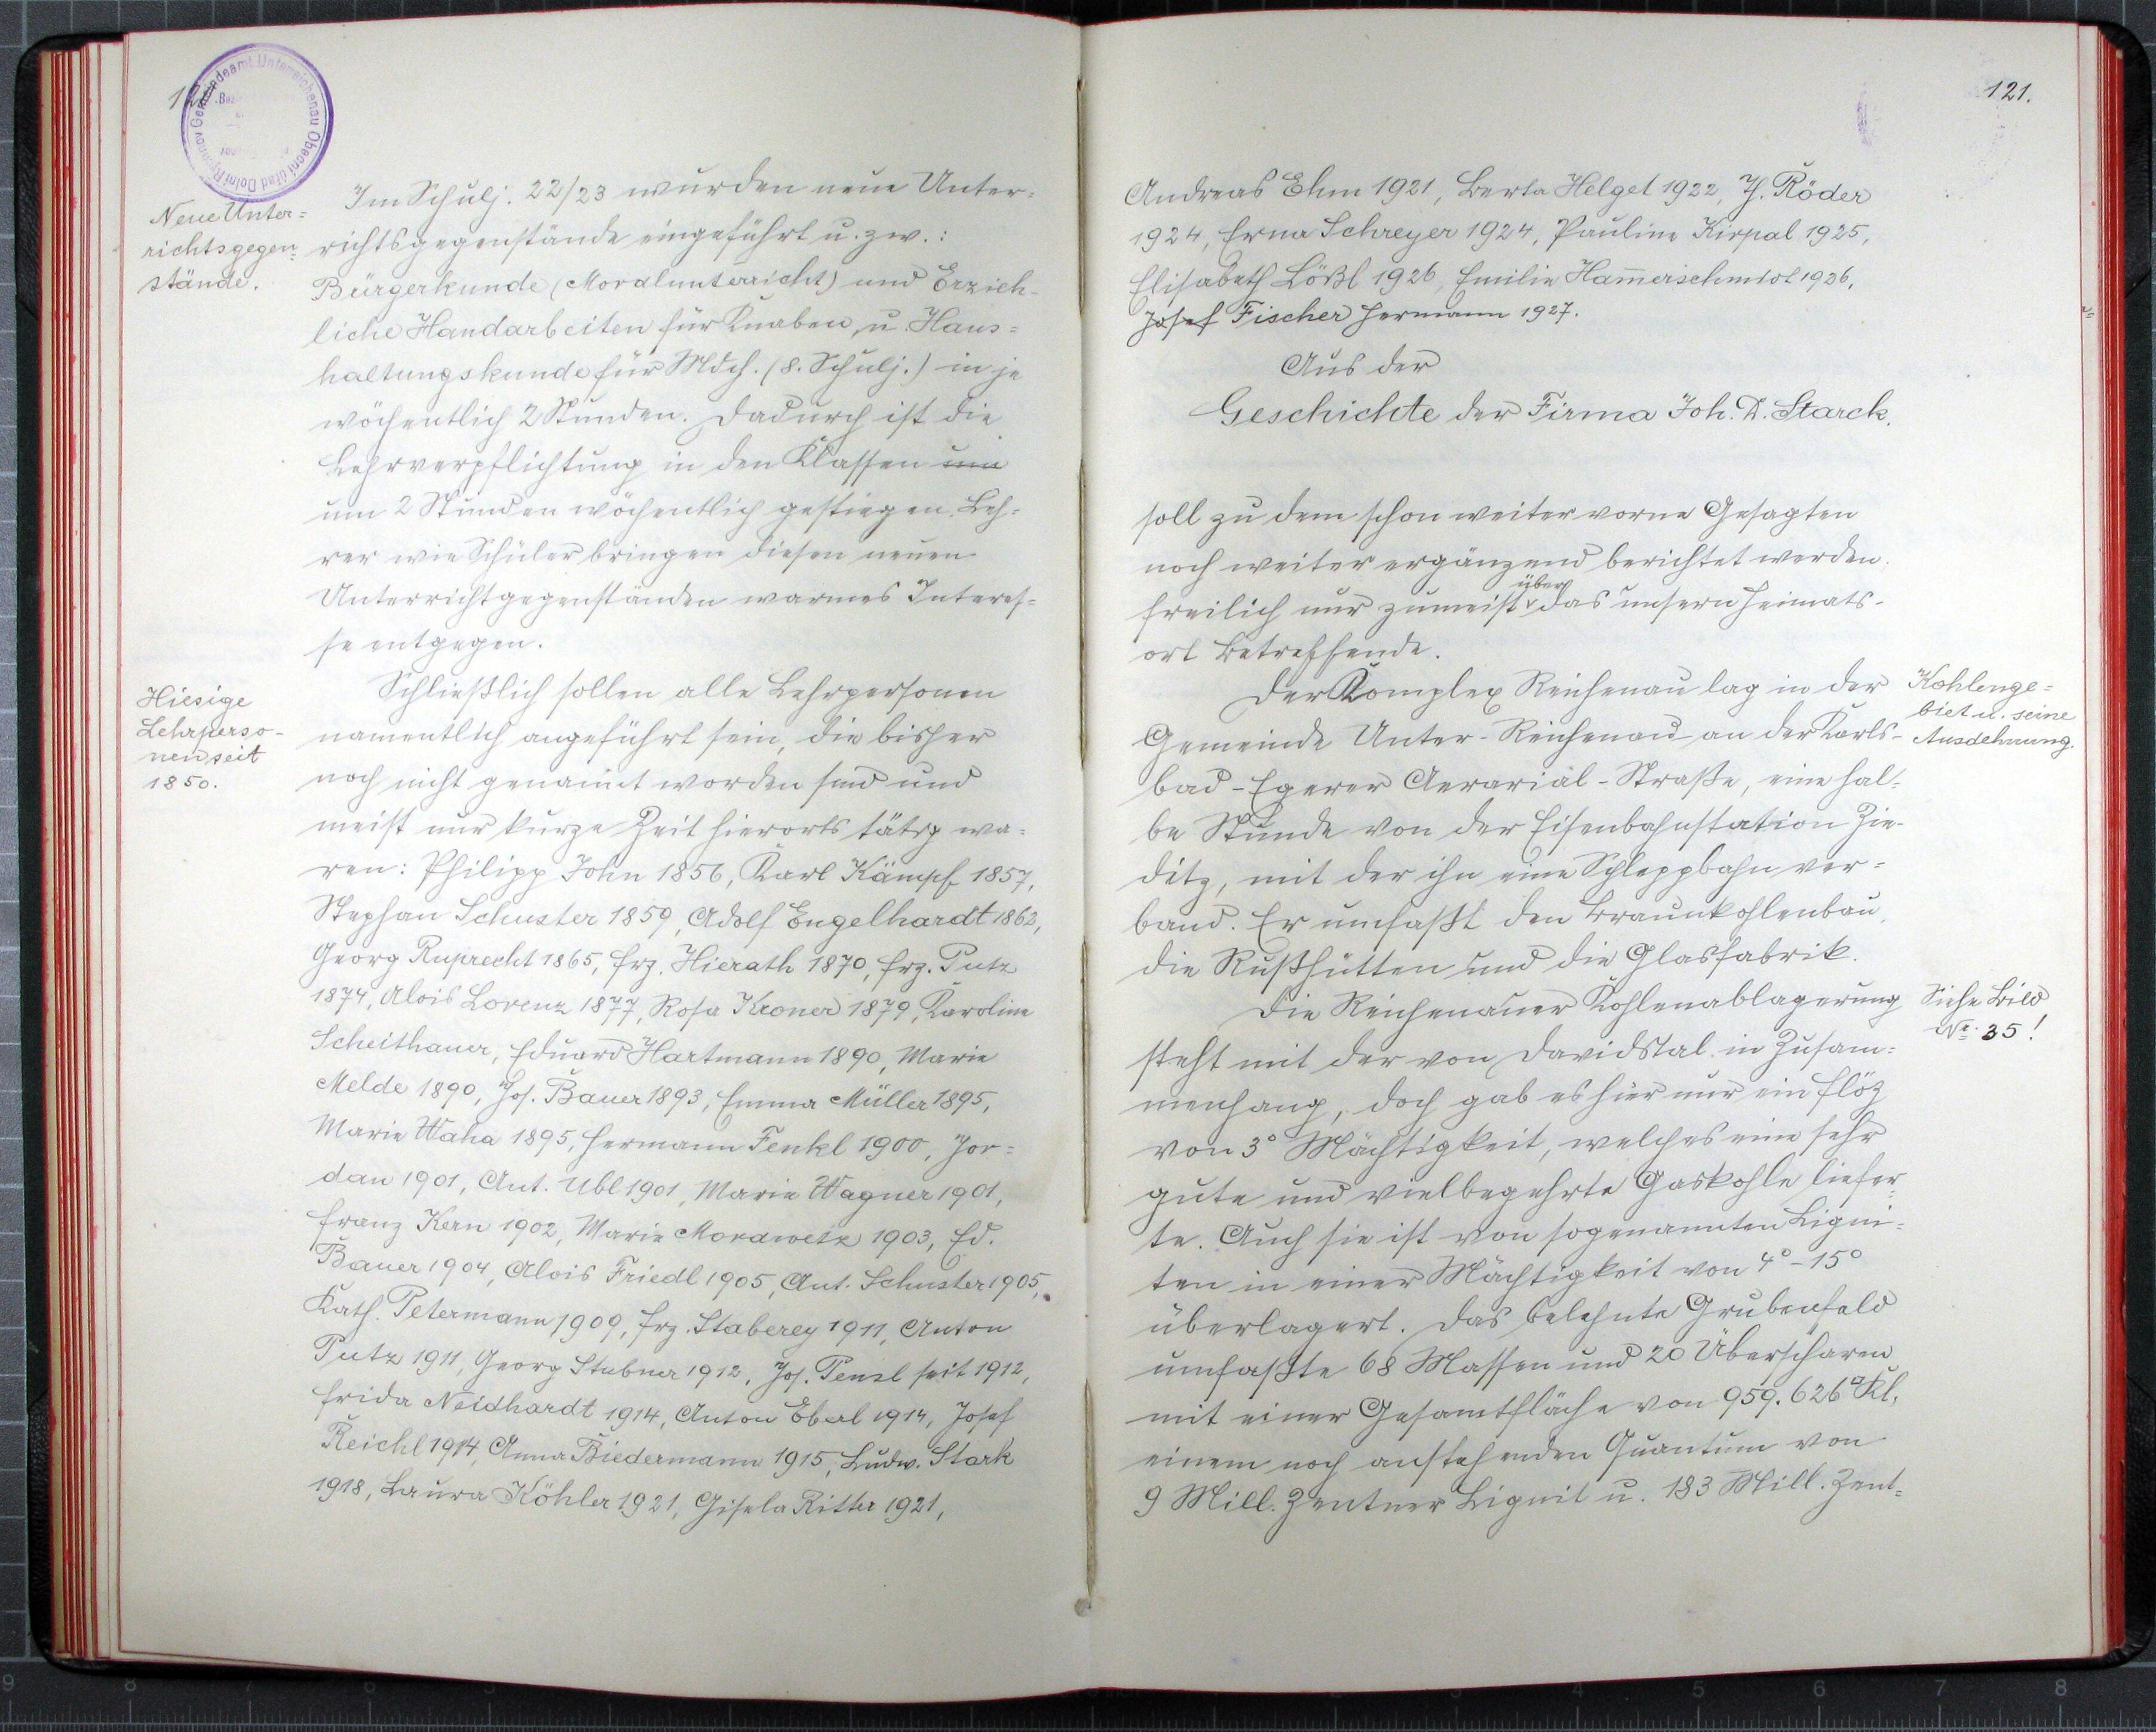 Gemeindeamt Unterreichenau Obecní úřad Dolní Rychnov
Neue Unter=
richtsgegen=
stände.
Im Schulj. 22/23 wurden neue Unter=
richtsgegenstände eingeführt u. zw.:
Bürgerkunde (Moralunterricht) und Erzieh-
liche Handarbeiten für Knaben u. Haus=
haltungskunde für Mdch. (8. Schulj.) in je
wöchentlich 2 Stunden. Dadurch ist die
Lehrverpflichtung in den Klassen um
um 2 Stunden wöchentlich gestiegen. Leh=
rer wie Schüler bringen diesen neuen
Unterrichtgegenständen warmes Interes=
se entgegen.
Hiesige
Lehrperso-
nen seit
1850.
Schließlich sollen alle Lehrpersonen
namentlich angeführt sein, die bisher
noch nicht genannt worden sind und
meist nur kurze Zeit hierorts tätig wa=
ren: Philipp John 1856, Karl Kämpf 1857,
Stephan Schuster 1859, Adolf Engelhardt 1862,
Georg Ruprecht 1865, Frz. Hierath 1870, Frz. Putz
1874, Alois Lorenz 1877, Rosa Kroner 1879, Karoline
Scheithauer, Eduard Hartmann 1890, Marie
Melde 1890, Jos. Bauer 1893, Emma Müller 1895,
Marie Waha 1895, Hermann Fenkl 1900, Jor=
dan 1901, Ant. Ubl 1901, Marie Wagner 1901,
Franz Kern 1902, Marie Morawetz 1903, Ed.
Bauer 1904, Alois Friedl 1905, Ant. Schuster 1905,
Kath. Petermann 1909, Frz. Staberey 1911, Anton
Putz 1911, Georg Stubner 1912, Jos. Pensl seit 1912,
Frida Neidhardt 1914, Anton Eberl 1914, Josef
Reichl 1914, Anna Biedermann 1915, Ludw. Stark
1918, Laura Köhler 1921, Gisela Ritter 1921,
121.
Andreas Ehm 1921, Berta Helget 1922, J. Röder
1924, Erna Schreyer 1924, Pauline Kirpal 1925,
Elisabeth Lößl 1926, Emilie Ham̅erschmidt 1926,
Josef Fischer Hermann 1927.
Aus der
Geschichte der Firma Joh. D. Starck.
soll zu dem schon weiter vorne Gesagten
noch weiter ergänzend berichtet werden.
Freilich nur zumeist über das unsern Heimats-
ort Betreffende.
Der Komplex Reichenau lag in der
Gemeinde Unter-Reichenau an der Karls-
bad-Egerer Aerarial-Straße, eine hal=
be Stunde von der Eisenbahnstation Zie-
ditz, mit der ihn eine Schleppbahn ver=
band. Er umfaßt den Braunkohlenbau,
die Rußhütten und die Glasfabrik.
Kohlenge=
biet u. seine
Ausdehnung.
Die Reichenauer Kohlenablagerung
steht mit der von Davidstal in Zusam=
menhang, doch gab es hier nur ein Flöz
von 3° Mächtigkeit, welches eine sehr
gute und vielbegehrte Gaskohle liefer=
te. Auch sie ist von sogenannten Ligni=
ten in einer Mächtigkeit von 4°-15°
überlagert. Das belehnte Grubenfeld
umfaßte 68 Massen und 20 Überscharen
mit einer Gesamtfläche von 959.626 □Kl.
einem noch anstehenden Quantum von
9 Mill. Zentner Lignit u. 183 Mill. Zent=
Siehe Bild
Nr. 35!